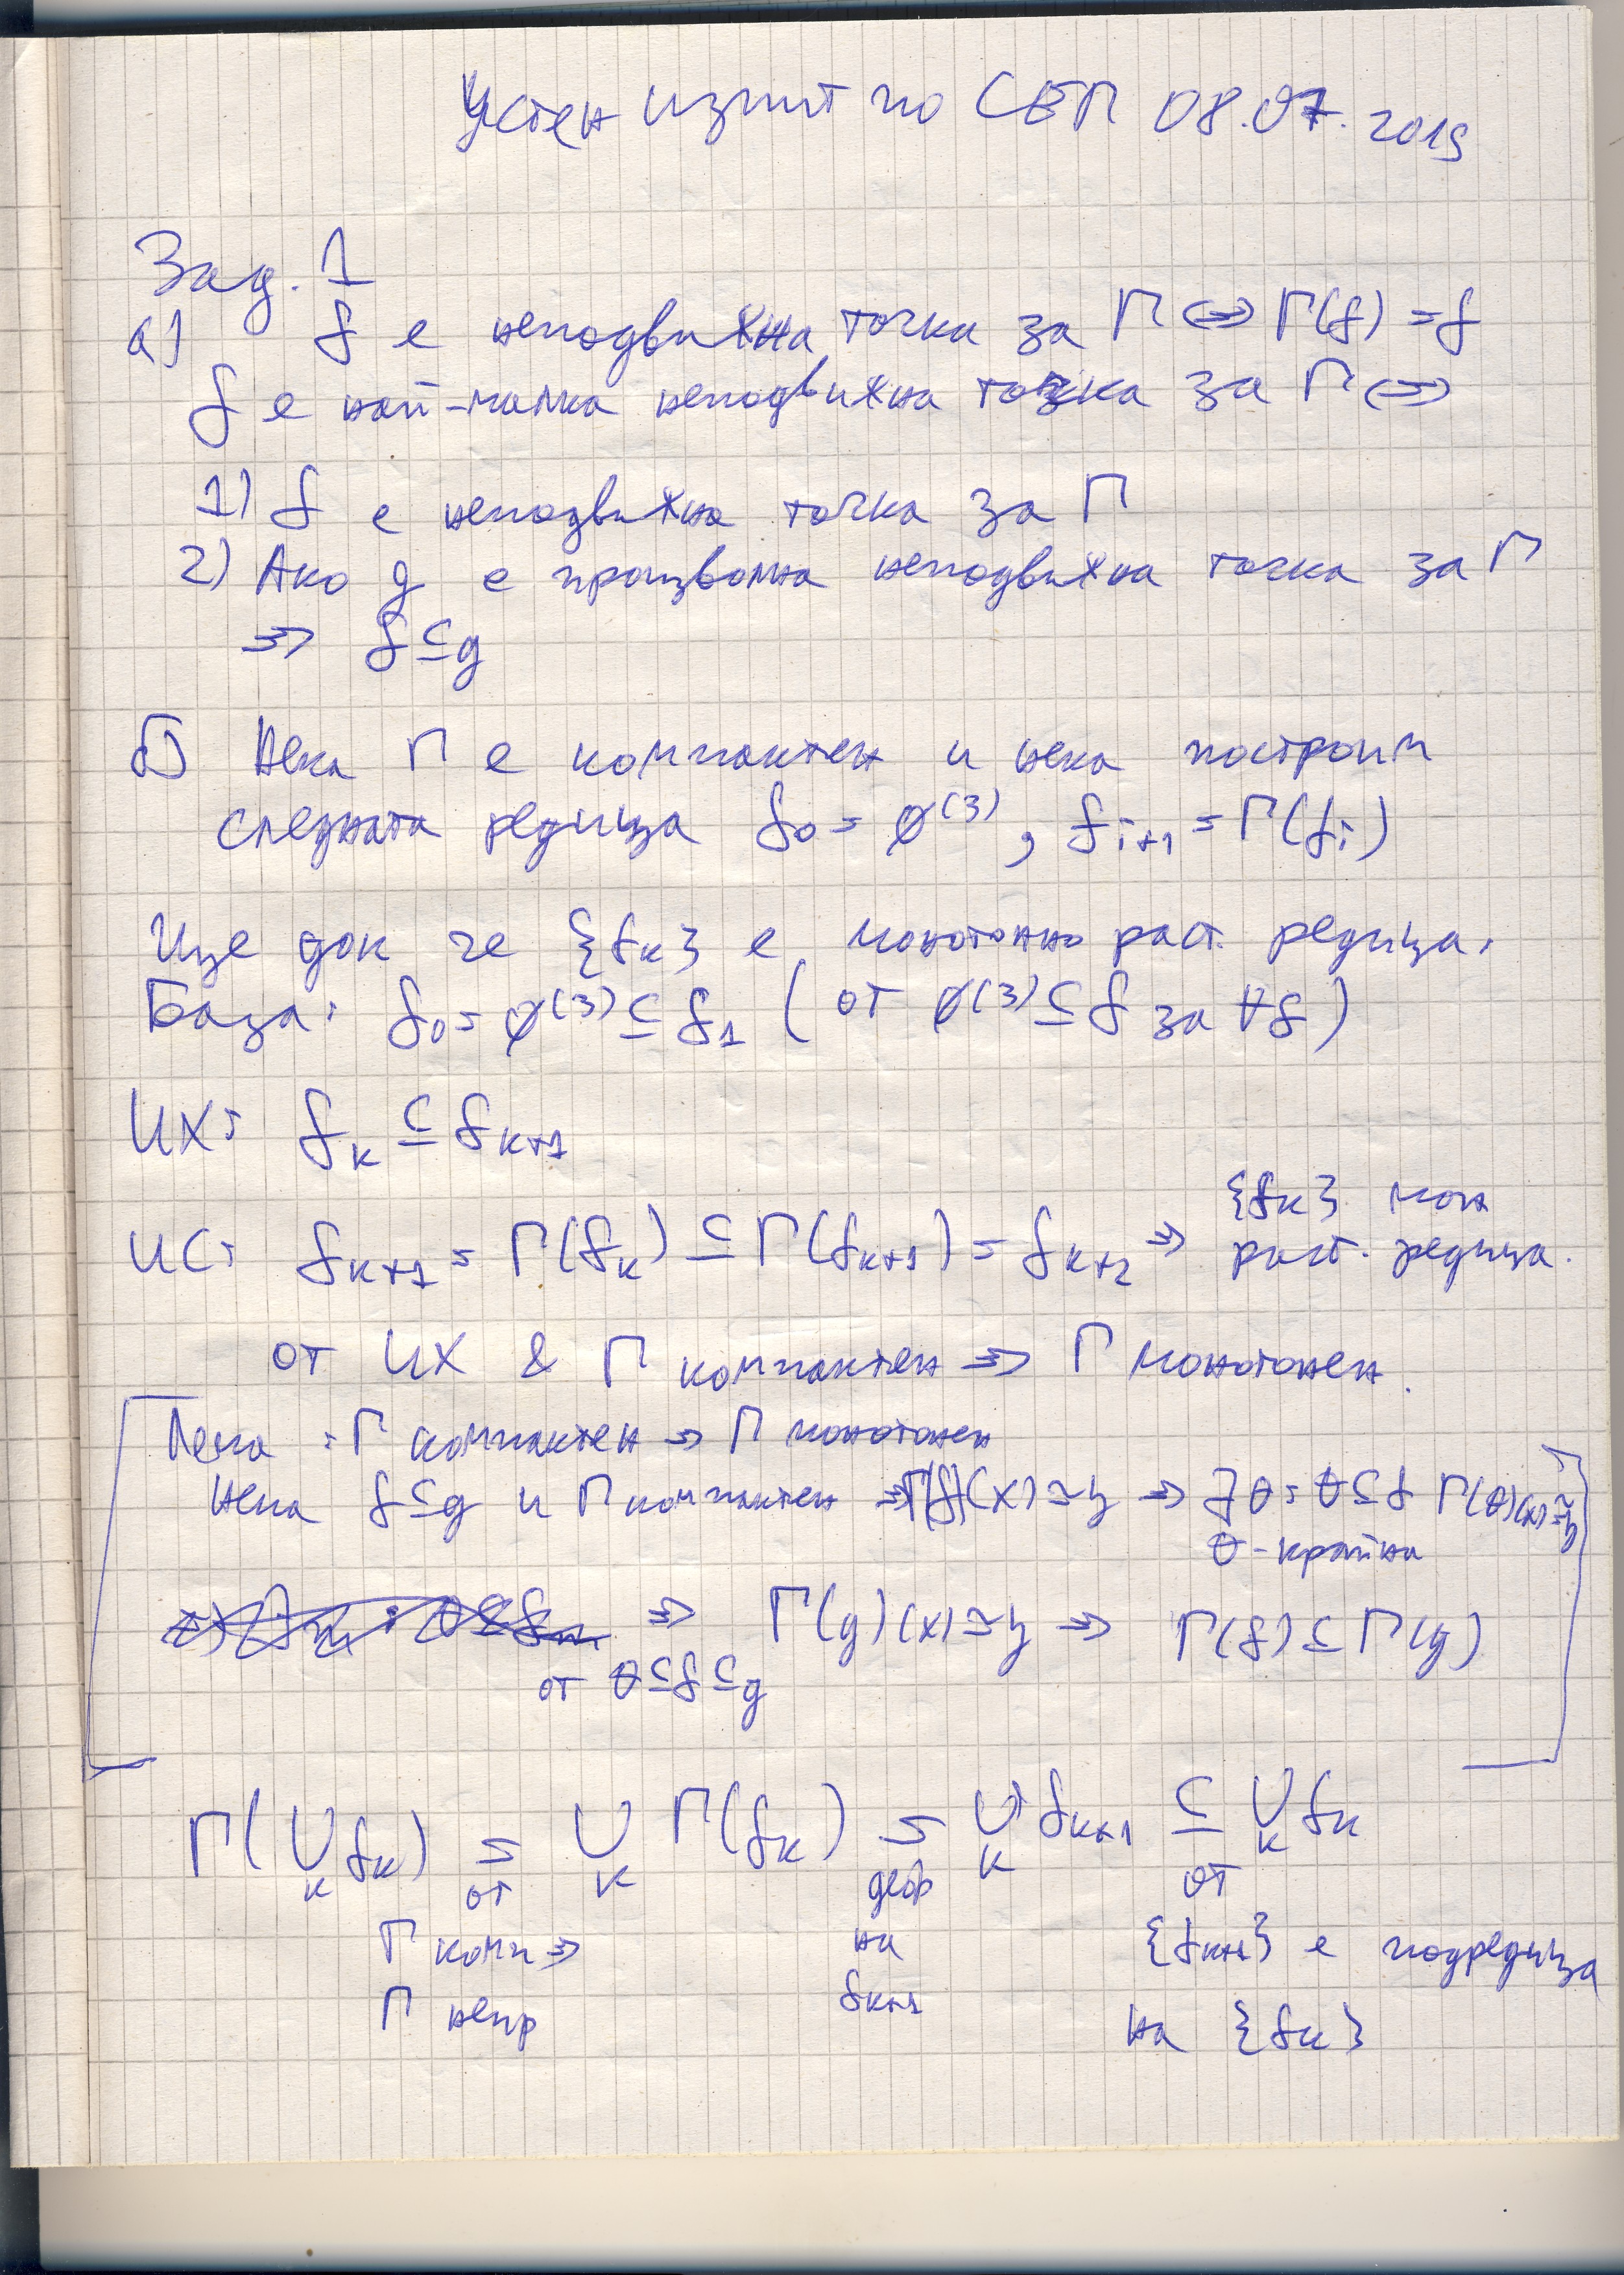 Устен изпит по СЕП 08.07.2019
Зад. 1
а) f е неподвижна точка за Γ ⇔ Γ(f) = f
f е най-малка неподвижна точка за Γ ⇔
1) f е неподвижна точка за Γ
2) Ако g е произволна неподвижна точка за Γ
⇒ f ⊆ g
б) Нека Γ е компактен и нека построим
следната редица f₀ = ∅⁽³⁾, fᵢ₊₁ = Γ(fᵢ)
Ще док че {fₖ} е монотонно раст. редица.
База: f₀ = ∅⁽³⁾ ⊆ f₁ (от ∅⁽³⁾ ⊆ f за ∀f)
ИХ: fₖ ⊆ fₖ₊₁
ИС: fₖ₊₁ = Γ(fₖ) ⊆ Γ(fₖ₊₁) = fₖ₊₂ ⇒ {fₖ} мон
раст. редица.
от ИХ & Γ компактен ⇒ Γ монотонен.
Лема: Γ компактен ⇒ Γ монотонен
Нека f ⊆ g и Γ компактен ⇒ Γ(f)(x) ≃ y ⇒ ∃θ: θ ⊆ f Γ(θ)(x) ≃ y
θ - крайна
⇒ Γ(g)(x) ≃ y ⇒ Γ(f) ⊆ Γ(g)
от θ ⊆ f ⊆ g
Γ(⋃ₖ fₖ) = ⋃ₖ Γ(fₖ) = ⋃ₖ fₖ₊₁ ⊆ ⋃ₖ fₖ
от деф от
Γ комп ⇒ на {fₖ₊₁} е подредица
Γ непр fₖ₊₁ на {fₖ}